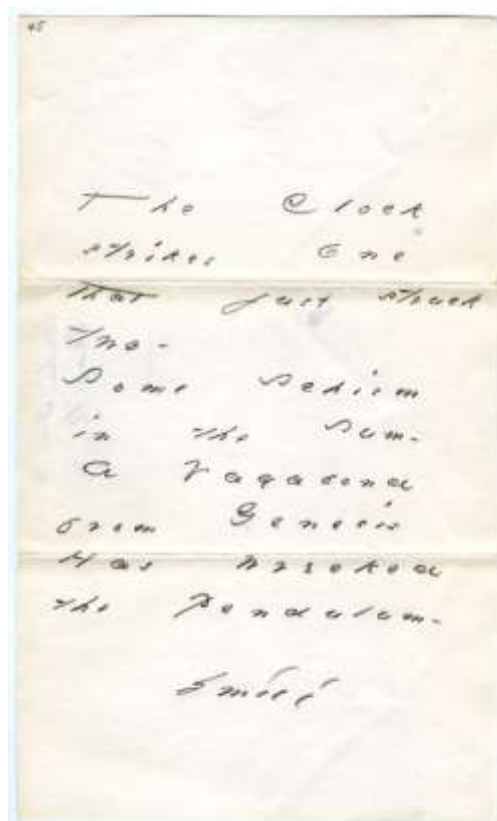 45
The Clock
strikes One
That just struck
Two -
Some Schism
in the Sum -
A Vagabond
from Genesis
Has wrecked
the Pendulum -
Emily